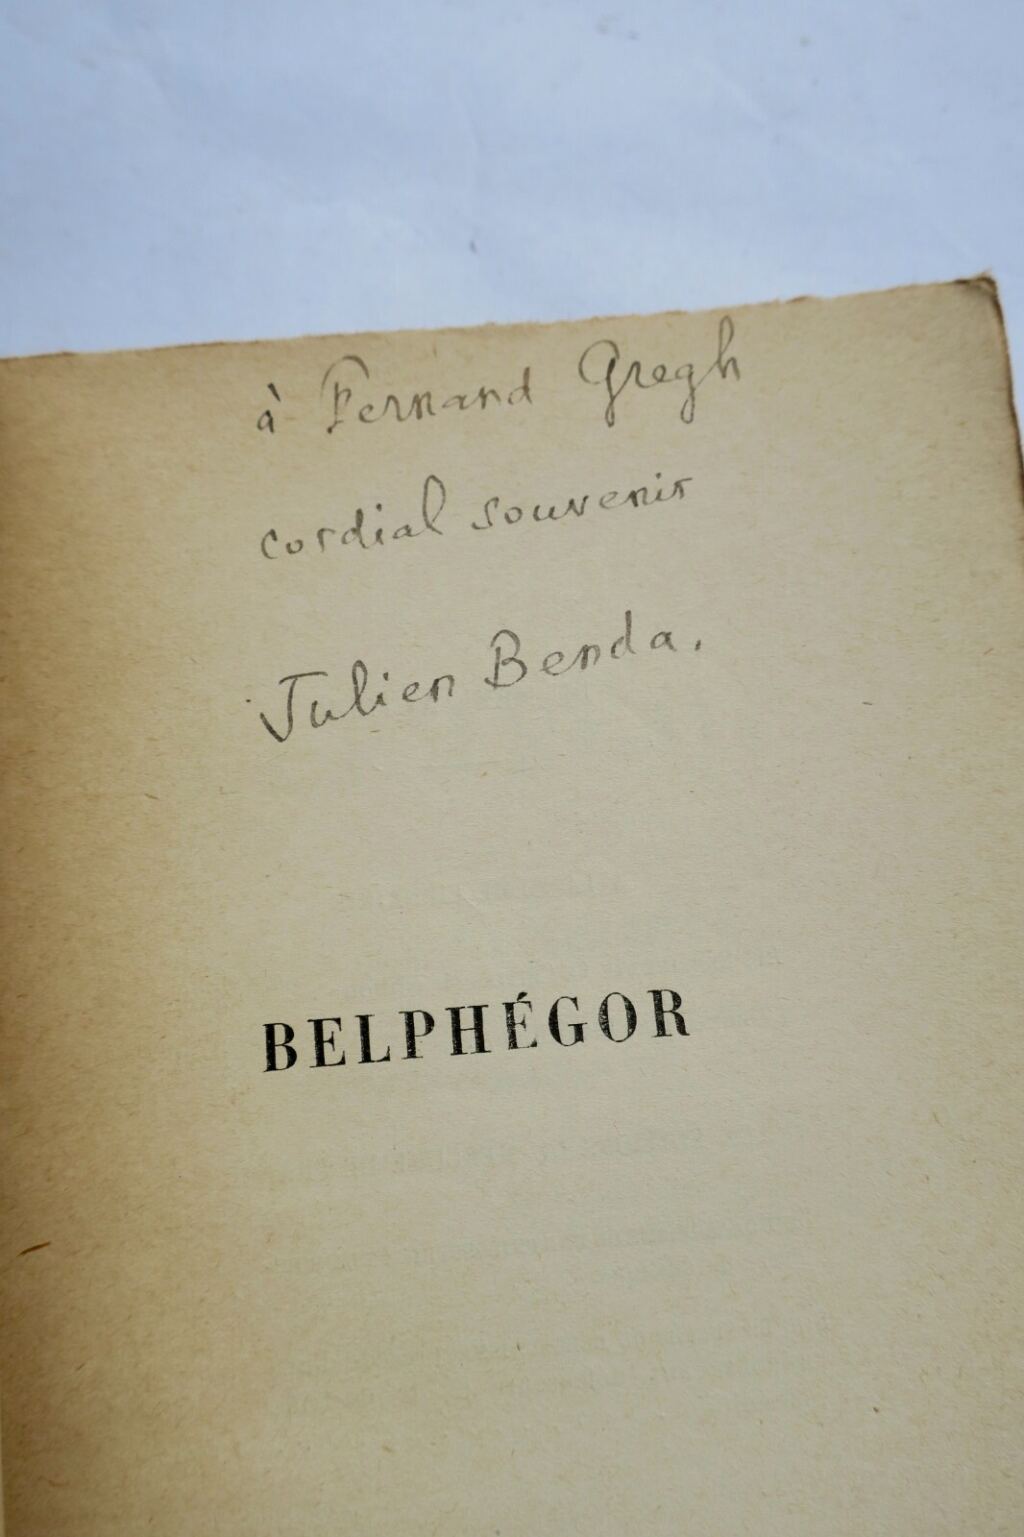 à Fernand Gregh
cordial souvenir
Julien Benda.
BELPHÉGOR